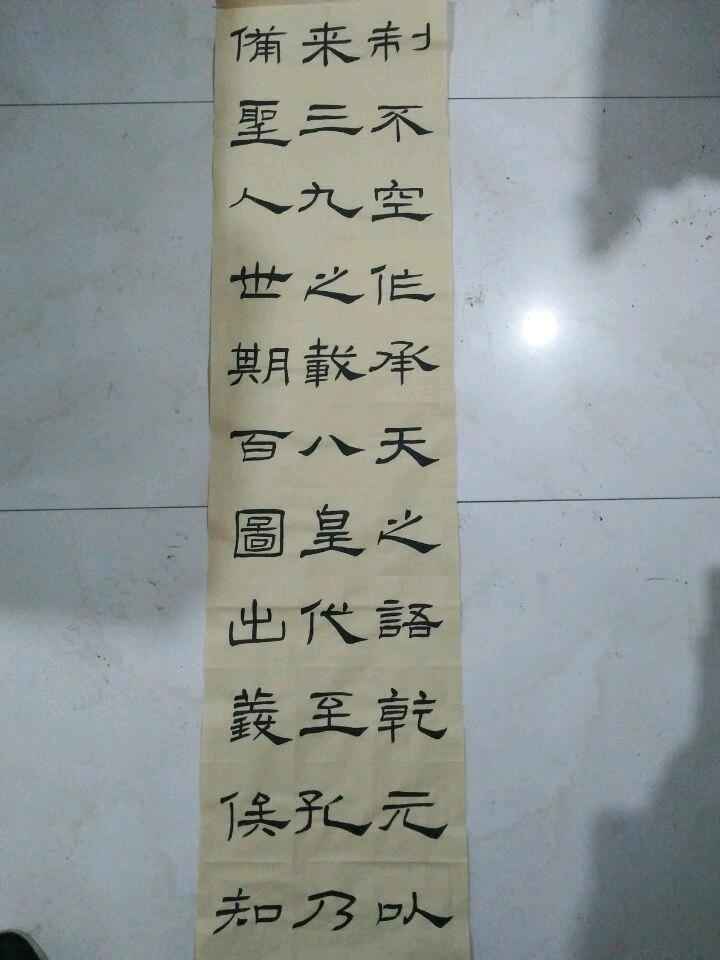 制不空作承天之語乾元以
来三九之載八皇代至孔乃
備聖人世期百圖出義俟知